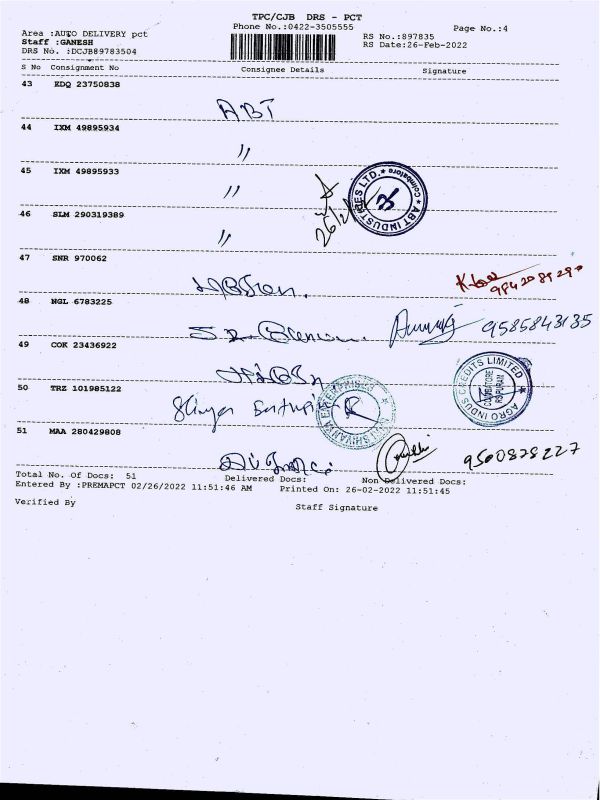 TPC/CJB DRS - PCT
Phone No.:0422-3505555
Page No.:4
Area :AUTO DELIVERY pct
RS No.:897835
Staff :GANESH
RS Date:26-Feb-2022
DRS No. :DCJB89783504
S No Consignment No Consignee Details Signature
43 EDQ 23750838
ABT
44 IXM 49895934
"
45 IXM 49895933
"
ABT INDUSTRIES LTD. * Coimbatore *
46 SLM 290319389
"
26/2/
47 SNR 970062
9842089290
48 NGL 6783225
9585843135
49 COK 23436922
AGRO INDUS CREDITS LIMITED
COIMBATORE
RS PURAM
50 TRZ 101985122
51 MAA 280429808
9500828227
Total No. Of Docs: 51 Delivered Docs: Non Delivered Docs:
Entered By :PREMAPCT 02/26/2022 11:51:46 AM Printed On: 26-02-2022 11:51:45
Verified By Staff Signature